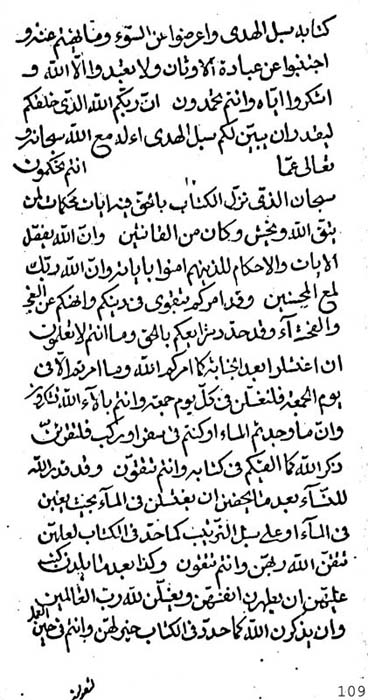 كتابه سبل الهدى واعرضوا عن السّوء وما نهيتم عنه و
اجتنبوا عن عبادة الاوثان ولا تعبدوا الّا الله و
اشكروا ايّاه وانتم تحمدون انّ ربّكم الله الذى خلقكم
ليقدر ان يبيّن لكم سبل الهدى ءاله مع الله سبحانه و
تعالى عمّا انتم تحكمون
سبحان الذى نزّل الكتاب بالحقّ فيه ايات محكمات لمن
يتق الله ويخشى وكان من القانتين وانّ الله يفصّل
الايات والاحكام للذينهم امنوا باياته وانّ الله ربّك
لمع المحسنين وقد امركم بتقوى فى دينكم وانهكم عن
والفحشآء وقد حدد شرايعكم بالحق وما انتم لا تعلمون
ان اغتسلوا بعد الجنابة كما امركم الله وما امرتم الّا فى
يوم الجمعه فلتغسلن فى كلّ يوم جمعه وانتم بالآء الله تشكرون
وان ما وجدتم المآء او كنتم فى سفر او ركب فلتقرئنّ
ذكر الله كما القيكم فى كتابه وانتم تتقون وقد قدر الله
للنسآء بعد ما يحضن ان يغتسلن فى المآء بحيث يغبن
فى المآء او على سبل الترتيب كما حدد فى الكتاب لعلهنّ
تتقنّ الله ربهنّ وانتم تتقون وكذا بعد ما يلدن كتب
عليهنّ ان يطهرن انفسهنّ ويغسلن لله ربّ العالمين
وان يذكرن الله كما حدد فى الكتاب خير لهنّ وانتم فى حين
109